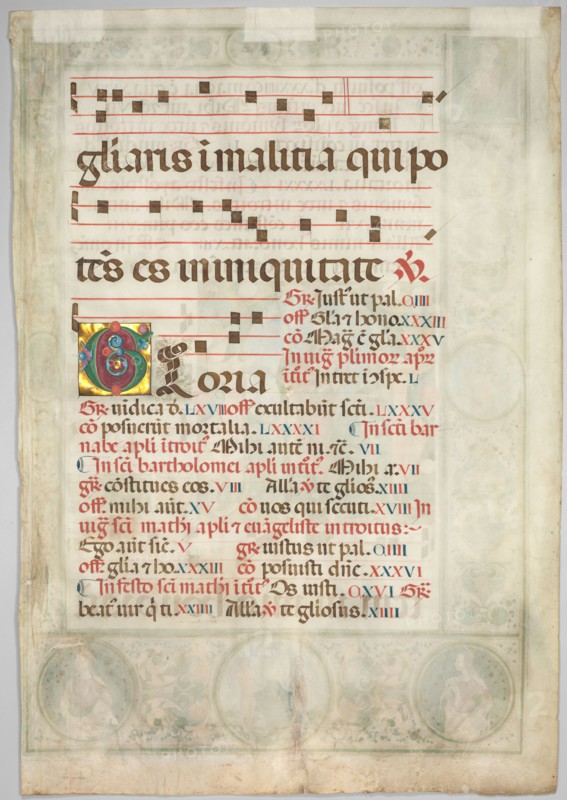 gliaris i malitia qui po
tes es in iniquitate ℣.
Gr Just' ut pal. CIIII
off Gl'a ⁊ hono. XXXIII
cō Mag̅ ē gl'a. XXXV
In uig̅ pl'imor ap'or
Gloria
itit' In tret isp̄c. L
Gr. uidica d̄. LXVIII off exultabūt scti. LXXXV
cō posuerūt mortalia. LXXXXI In sc̄i bar
nabe apl'i itroit' Mihi autē ni. ⁊c̄. VII
In sc̄i bartholomei apl'i intit'. Mihi a. VII
gr̄ cōstitues eos. VIII All'a ℣ te glios'. XIIII
off. mihi aūt. XV cō uos qui secuti. XVIII In
uig̅ sc̄i mathi apl'i ⁊ euāgeliste introitus:~
Ego aūt sic̄. V gr̄ iustus ut pal. CIIII
off. gl'ia ⁊ ho. XXXIII cō posuisti dn̄e. XXXVI
In festo sc̄i mathi itit' Os iusti. CXVI Gr̄.
beat' uir q̄ ti. XXIIII All'a ℣ te gliosus. XIIII